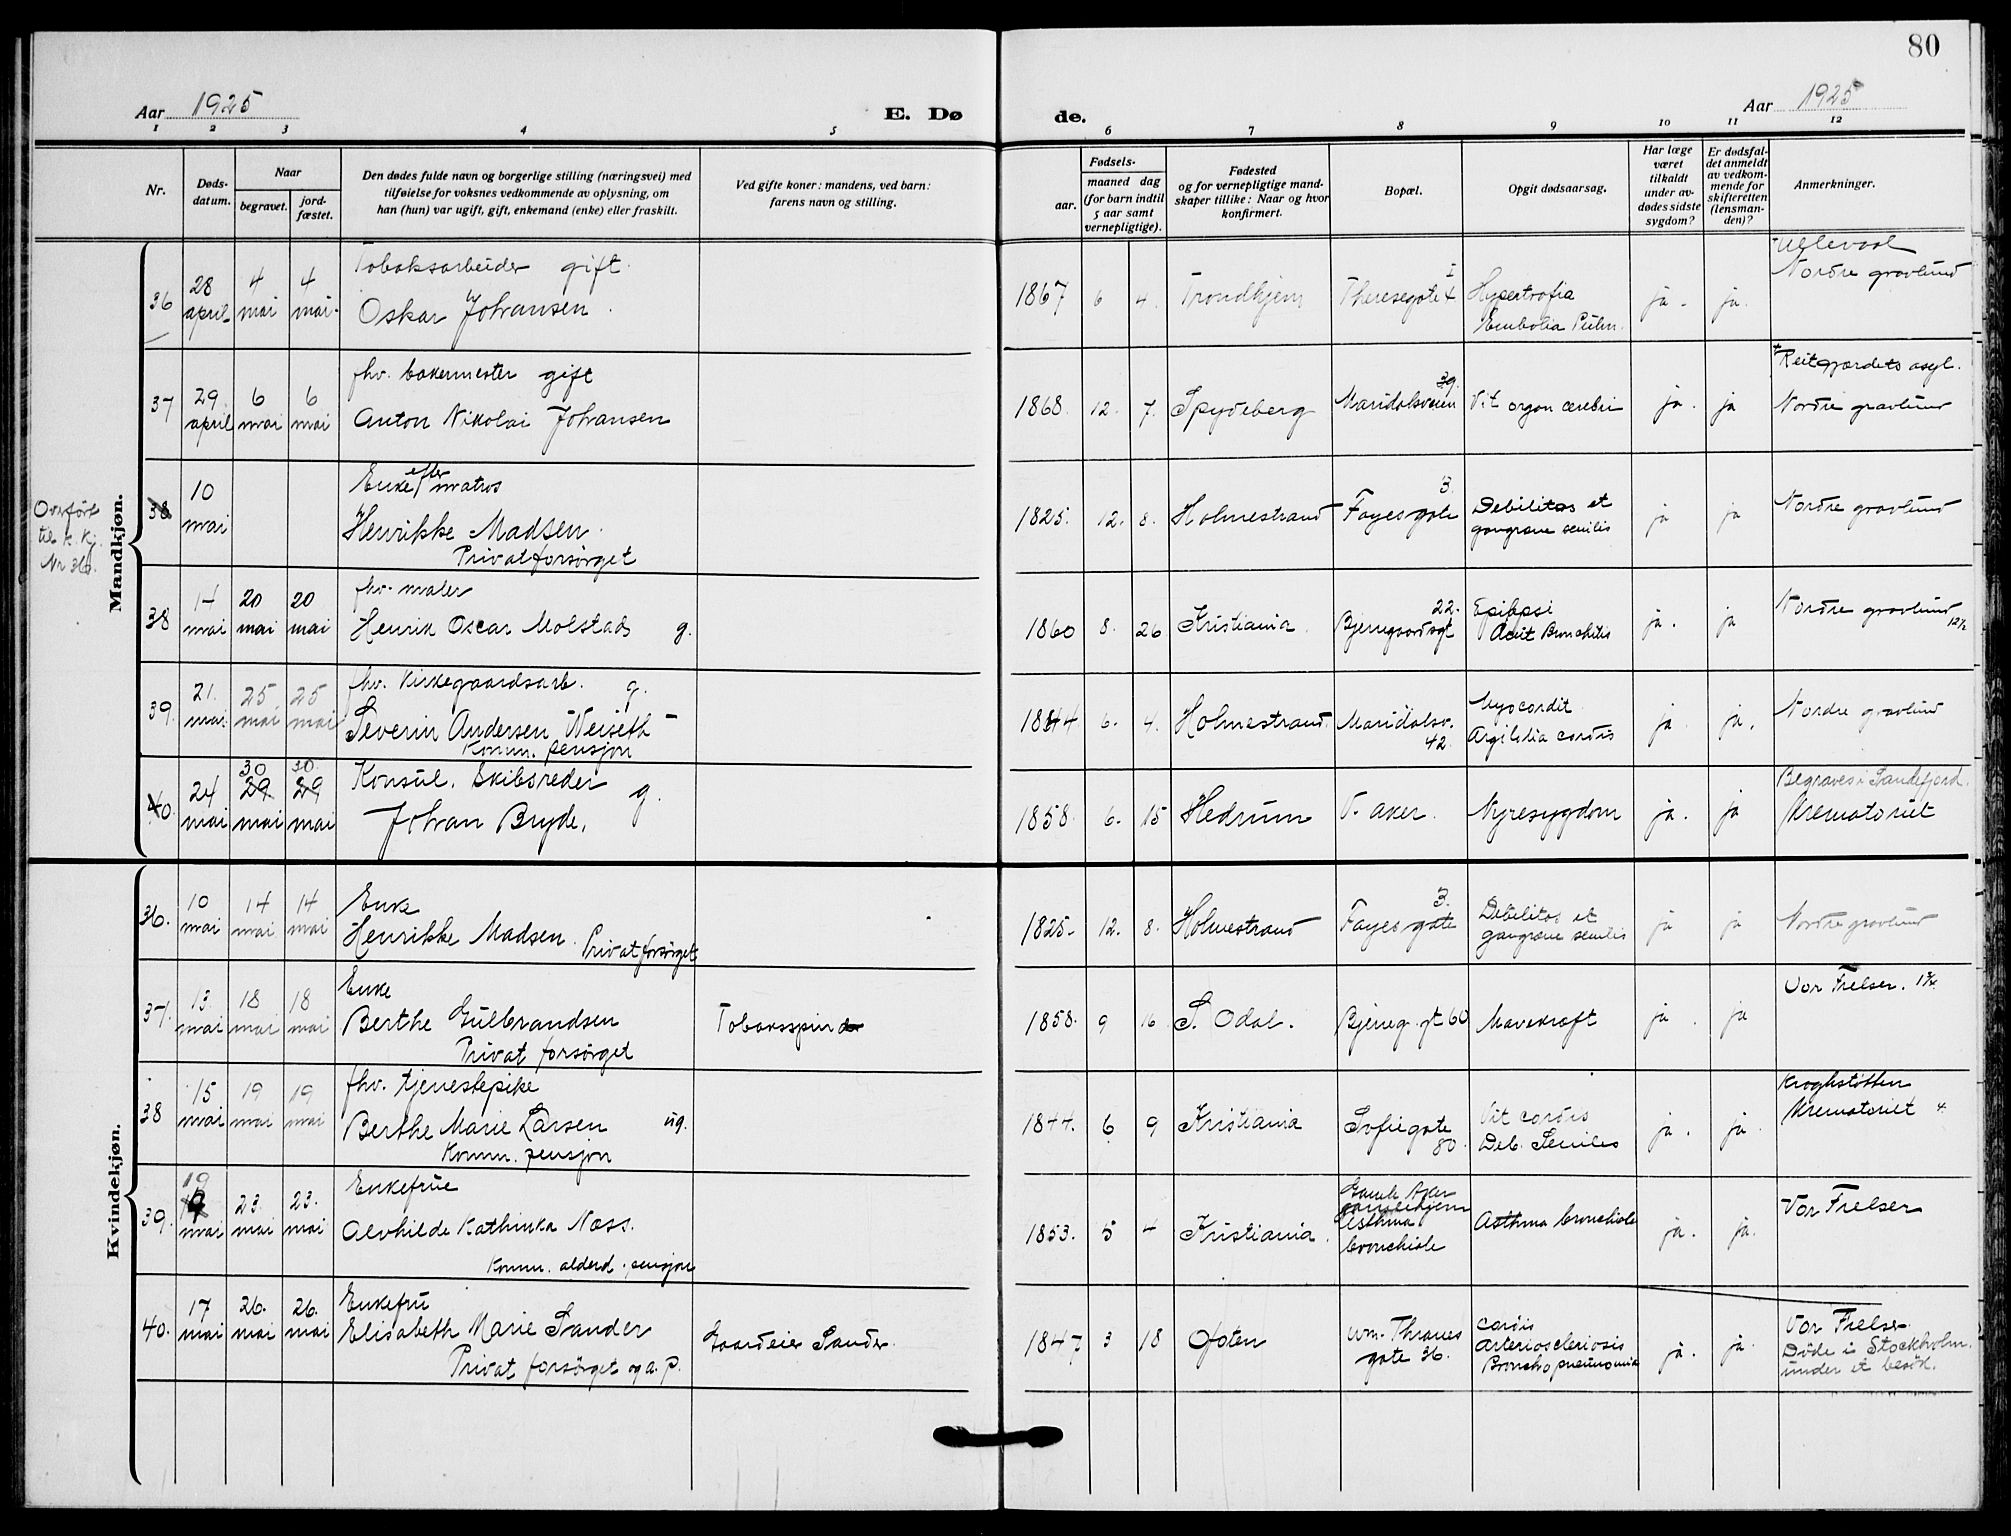 80
Aar 1925
E. Dø
de.
Aar 1925
1 2 3 4 5 6 7 8 9 10 11 12
Nr.
Døds-
datum.
Naar
begravet.
jord-
fæstet.
Den dødes fulde navn og borgerlige stilling (næringsvei) med
tilføielse for voksnes vedkommende av oplysning, om
han (hun) var ugift, gift, enkemand (enke) eller fraskilt.
Ved gifte koner: mandens, ved barn:
farens navn og stilling.
Fødsels-
aar.
maaned dag
(for barn indtil
5 aar samt
vernepligtige).
Fødested
og for vernepligtige mand-
skaper tillike: Naar og hvor
konfirmert.
Bopæl.
Opgit dødsaarsag.
Har læge
været
tilkaldt
under av-
dødes sidste
sygdom?
Er dødsfal-
det anmeldt
av vedkom-
mende for
skifteretten
(lensman-
den)?
Anmerkninger.
Mandkjøn.
36
28
april
4
mai
4
mai
Tobaksarbeider gift.
Oskar Johansen
1867 6 4. Trondhjem
Theresegate
Hypertrofia
Embolia Pulm.
ja ja.
Ullevaal
Nordre gravlund
37
29.
april
6
mai
6
mai
fhv. bakermester gift
Anton Nikolai Johansen
1868. 12. 7. Spydeberg
39.
Maridalsveien
Vit organ cerebri
ja. ja
Reitgjærdets asyl.
Nordre gravlund
Overført
til k.kj.
Nr 36.
38
10
mai
Enke efter matros
Henrikke Madsen.
Privatforsørget
1825. 12. 8. Holmestrand
3.
Fayesgate
Debilitas et
gangræne senilis
ja ja
Nordre gravlund
38
14
mai
20
mai
20
mai
fhv. maler
Henrik Oscar Molstads g.
1860 8. 26 Kristiania.
22.
Bjerregaardsgt
Epilepsi
Acut Bronchitis
ja. ja
Nordre gravlund
12½
39.
21.
mai
25
mai
25
mai
fhv. Kirkegaardsarb. g.
Severin Andersen Weiseth
Komm. pensjon
1844 6. 4. Holmestrand.
Maridalsv.
42.
Myocardit
cordis
ja ja.
Nordre gravlund
40.
24
mai
30
29
mai
30.
29
mai
Konsul. Skibsreder g.
Johan Bryde.
1858. 6. 15 Hedrum
V. Aker.
Nyresygdom
ja. ja
Begraves i Sandefjord.
Krematoriet
Kvindekjøn.
36.
10
mai
14
mai
14
mai
Enke
Henrikke Madsen. Privatforsørget
1825. 12. 8. Holmestrand
3.
Fayesgate
Debilitas et
gangræne senilis
ja ja
Nordre gravlund
37.
13.
mai
18
mai
18
mai
Enke
Berthe Gulbrandsen
Privat forsørget
Tobaksspinder
1858. 9 16. S. Odal.
Bjerreg. gt 60
Mavekræft
ja. ja
Vor Frelser.
38
15
mai
19
mai
19
mai
fhv. tjenestepike
Berthe Marie Larsen ug.
Komm. pensjon
1844. 6 9 Kristiania
Sofiegate
80.
Vit cordis
Deb. Seniles
ja. ja
Kroghstøtten
Krematoriet 4
39.
19
mai
23.
mai
23.
mai
Enkefrue
Alvhilde Kathinka Næss.
Komm. alderd. pensjon
1853. 5 4 Kristiania.
Gamle Aker
Asthma
bronchiale
Asthma bronchiale
ja. ja.
Vor Frelser
40.
17
mai
26.
mai
26.
mai
Enkefru
Elisabeth Marie Sander
Privat forsørget og a.p.
Gaardeier Sander
1847 3 18 Ofoten
Wm. Thranes
gate 36.
Cordis
Arteriosclerosis
Bronchopneumonia
ja. ja.
Vor Frelser
Døde i Stockholm.
under et besøk.